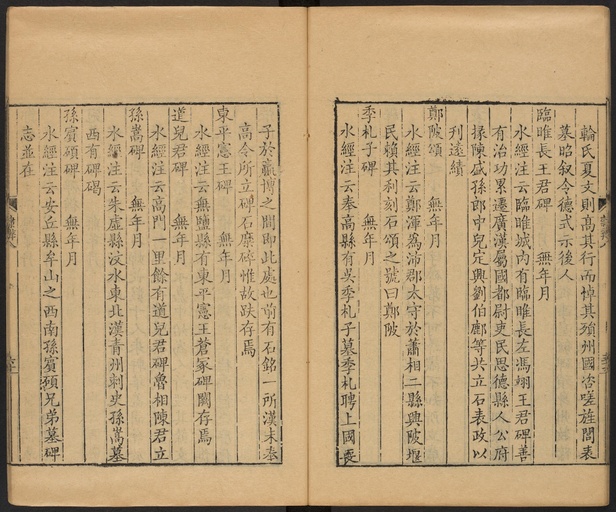 輪氏夏文則高其行而悼其殞州國咨嗟旌閭表
墓昭叙令德式示後人
臨睢長王君碑　無年月
水經注云臨睢城內有臨睢長左馮翊王君碑善
有治功累遷廣漢屬國都尉吏民思德縣人公府
掾陳盛孫郎中兒定興劉伯鄜等共立石表政以
刋遠績
鄭陂頌　無年月
水經注云鄭渾為沛郡太守於蕭相二縣興陂堰
民賴其利刻石頌之號曰鄭陂
季札子碑　無年月
水經注云奉高縣有吳季札子墓季札聘上國喪
子於嬴博之間即此處也前有石銘一所漢末奉
高令所立碑石糜碎惟故趺存焉
東平憲王碑　無年月
水經注云無鹽縣有東平憲王蒼冢碑闕存焉
道兒君碑　無年月
水經注云高門一里餘有道兒君碑魯相陳君立
孫嵩碑　無年月
水經注云朱虛縣汶水東北漢青州刺史孫嵩墓
西有碑碣
孫賓碩碑　無年月
水經注云安丘縣牟山之西南孫賓碩兄弟墓碑
志並在